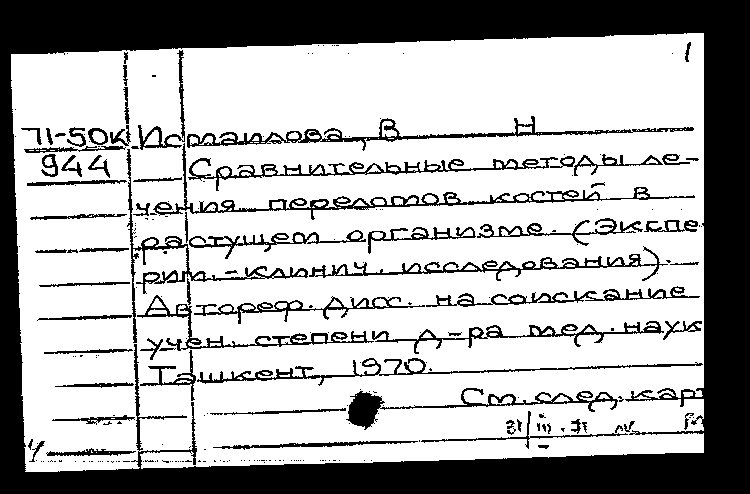 1
71-50к Исмаилова, В Н
944 Сравнительные методы ле-
чения переломов костей в
растущем организме. (Экспе
рим.-клинич. исследования).
Автореф. дисс. на соискание
учен. степени д-ра мед. наук
Ташкент, 1970.
См. след. карт
31/III.71